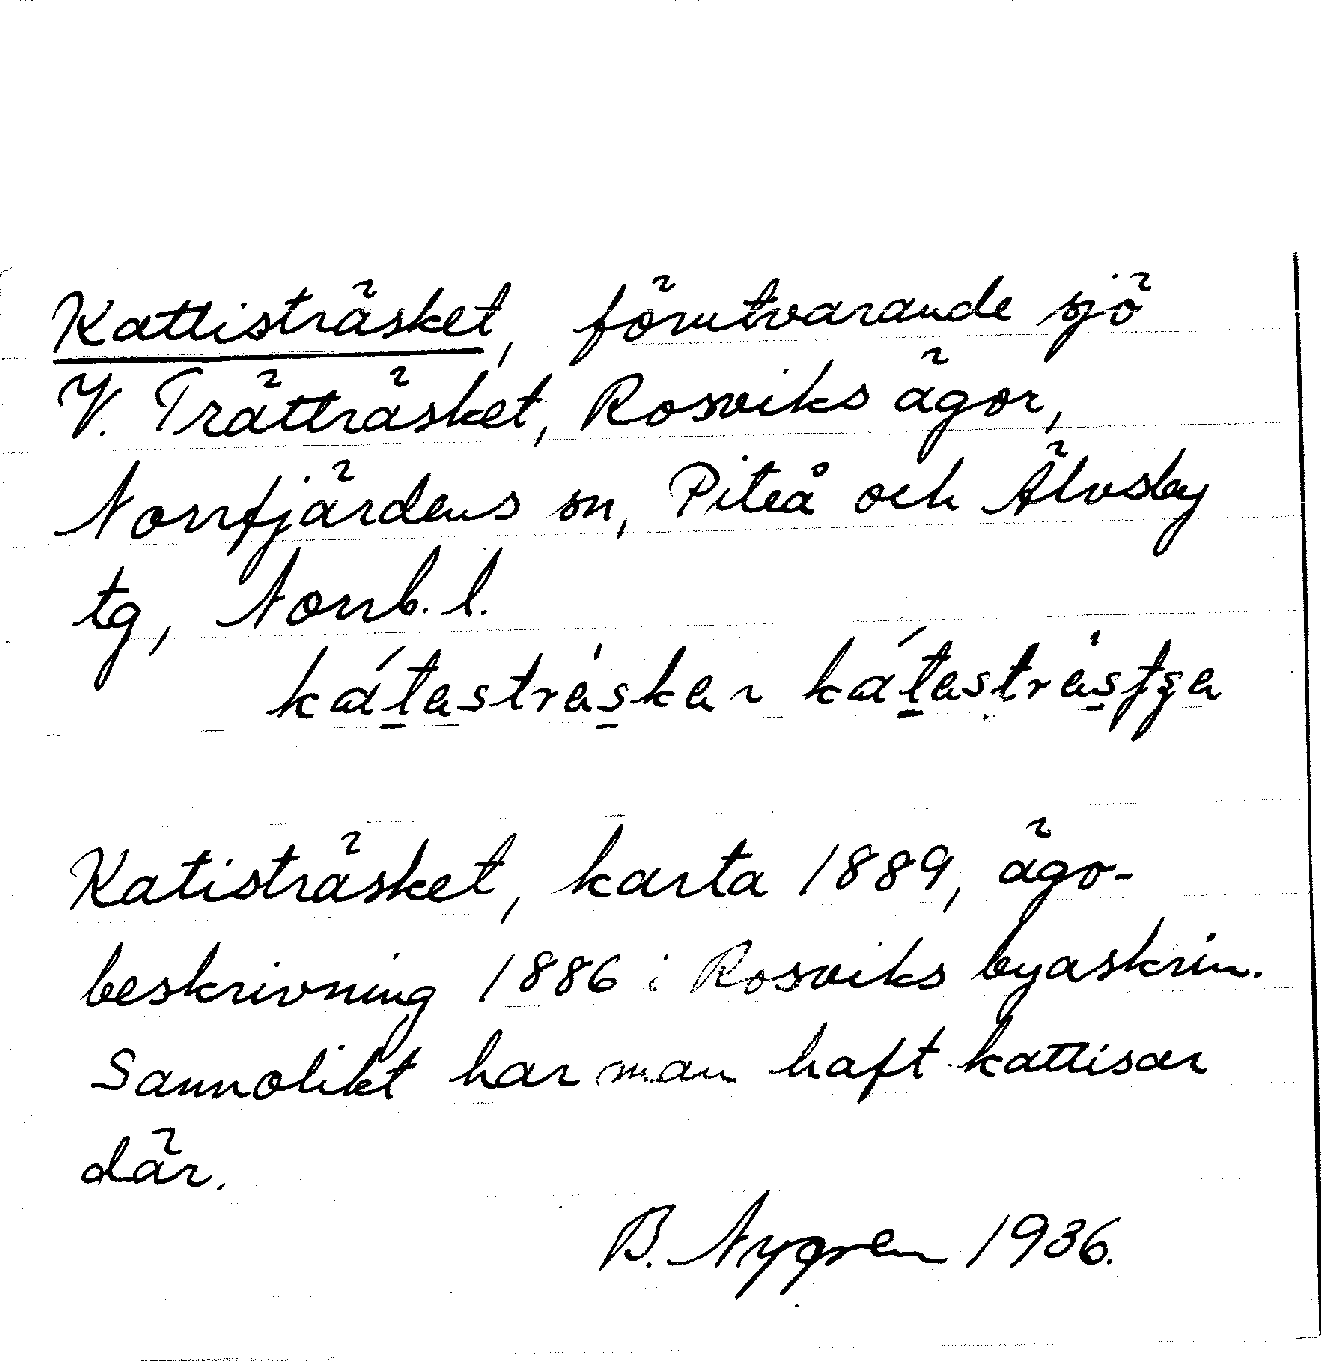 Kattisträsket, förutvarande sjö
V. Trätträsket, Rosviks ägor,
Norrfjärdens sn, Piteå och Älvsby
tg, Norrb. l.
Katisträsket, karta 1889, ägo-
beskrivning 1886 i Rosviks byaskrin.
Sannolikt har man haft kattisar
där.
B. Nygren 1936.